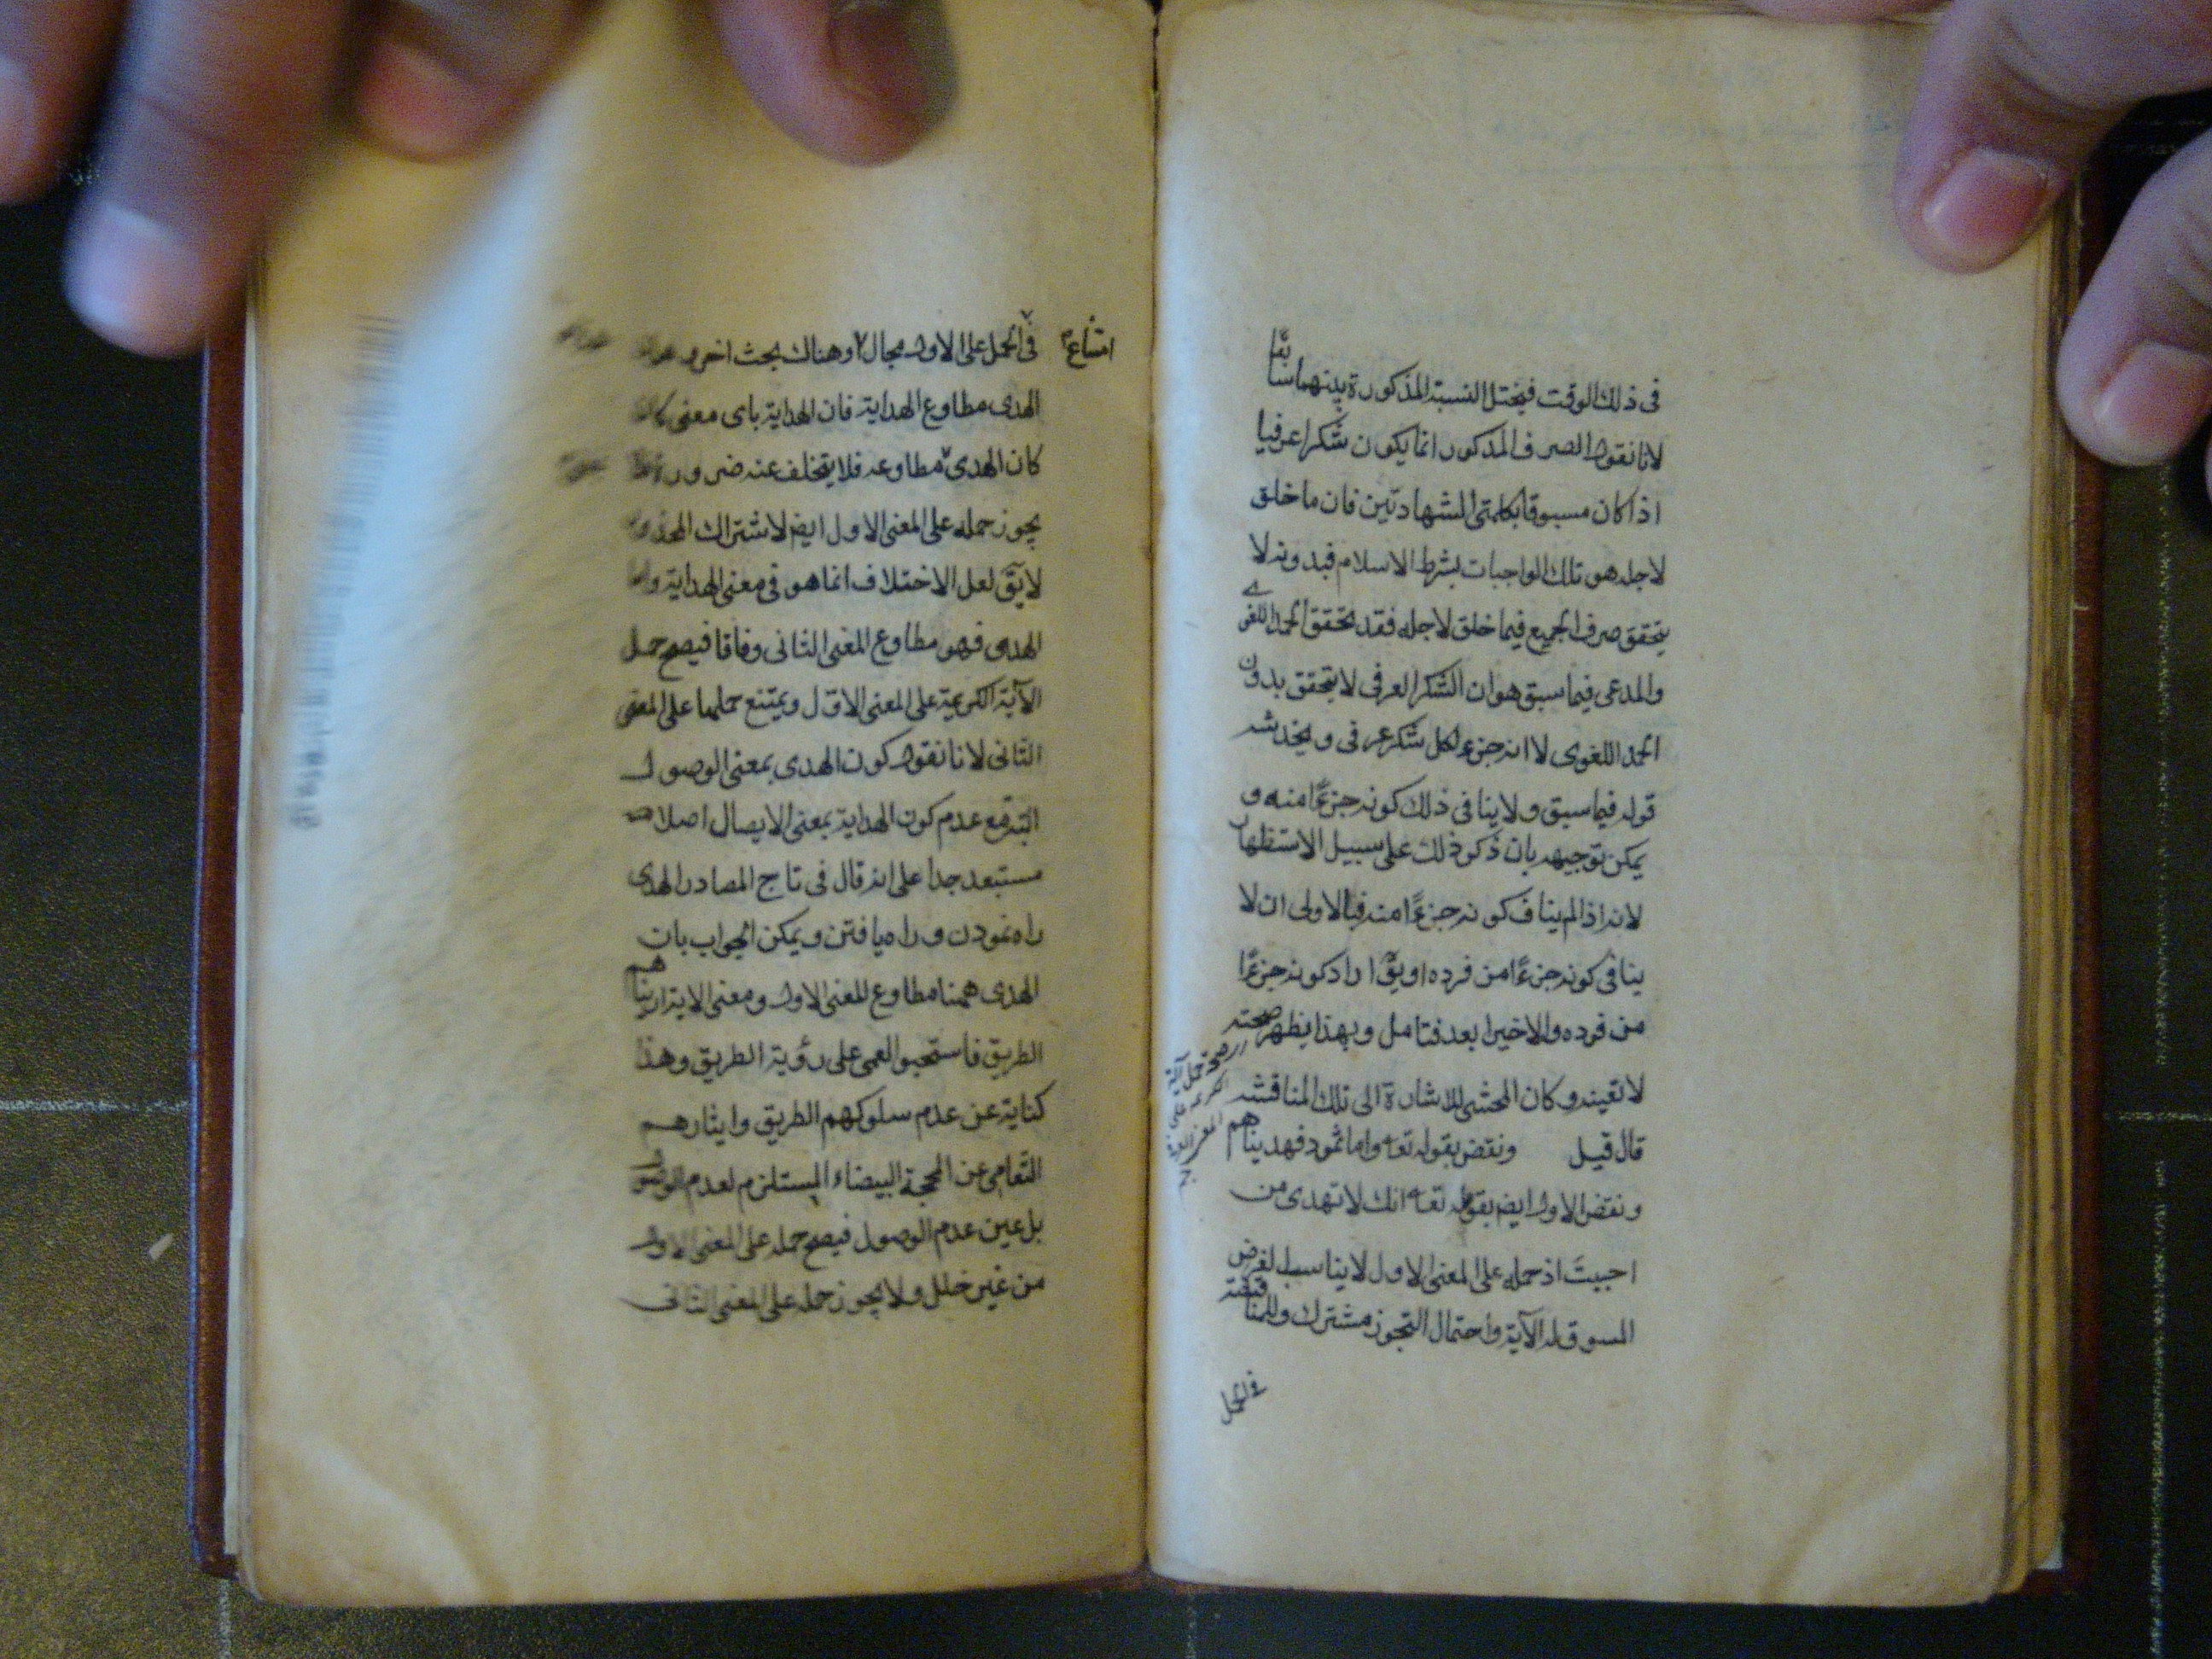 فى ذلك الوقت فيختل النسبة المذكورة بينهما سابقا
لانا نقول الصرف المذكور انما يكون شكرا عرفيا
اذا كان مسبوقا بكلمتى الشهادتين فان ما خلق
لاجله هو تلك الواجبات بشرط الاسلام فبدونه لا
يتحقق صرف الجميع فيما خلق لاجله فقد تحقق الحمد اللغوى
والمدعى فيما سبق هو ان الشكر العرفى لا يتحقق بدون
الحمد اللغوى لا انه جزء لكل شكر عرفى و يخدشه
قوله فيما سبق ولا ينافى ذلك كونه جزءًا منه و
يمكن توجيهه بان ذكر ذلك على سبيل الاستظهار
لانه اذا لم يناف كونه جزءًا منه فبالاولى ان لا
ينافى كونه جزءًا من فرده او يقٓ اراد كونه جزءًا
من فرده والاخير ابعد فتامل وبهذا يظهر صحته
لا تعينه وكان المحشى للاشارة الى تلك المناقشه
قال قيل ونقض بقوله تعه واما ثمود فهديناهم
ونقض الاول ايضا بقوله تعه انك لا تهدى من
احببت اذ حمله على المعنى الاول لا يناسب لغرض
المسوق له الآية واحتمال التجوز مشترك وللمناقشة
فى الحمل
امتناع
فى الحمل على الاول مجال وهناك بحث اخر
الهدى مطاوع الهداية فان الهداية باى معنى كان
كان الهدى مطاوعه فلا يتخلف عنه ضرورة
يجوز حمله على المعنى الاول ايضا لاشتراك المحذور
لا يقٓ لعل الاختلاف انما هو فى معنى الهداية واما
الهدى فهو مطاوع المعنى الثانى وفاقا فيصح حمل
الآية الكريمة على المعنى الاول ويمتنع حملها على المعنى
الثانى لانا نقول كون الهدى بمعنى الوصول
البته مع عدم كون الهداية بمعنى الايصال اصلا
مستبعد جدا على انه قال فى تاج المصادر الهدى
راه نمودن و راه يافتن ويمكن الجواب بان
الهدى ههنا مطاوع للمعنى الاول ومعنى الاية اريناهم
الطريق فاستحبوا العمى على رؤية الطريق وهذا
كناية عن عدم سلوكهم الطريق وايثارهم
التعامى عن المحجة البيضاء المستلزم لعدم الوصول
بل عين عدم الوصول فيصح حمله على المعنى الاول
من غير خلل ولا يجوز حمله على المعنى الثانى